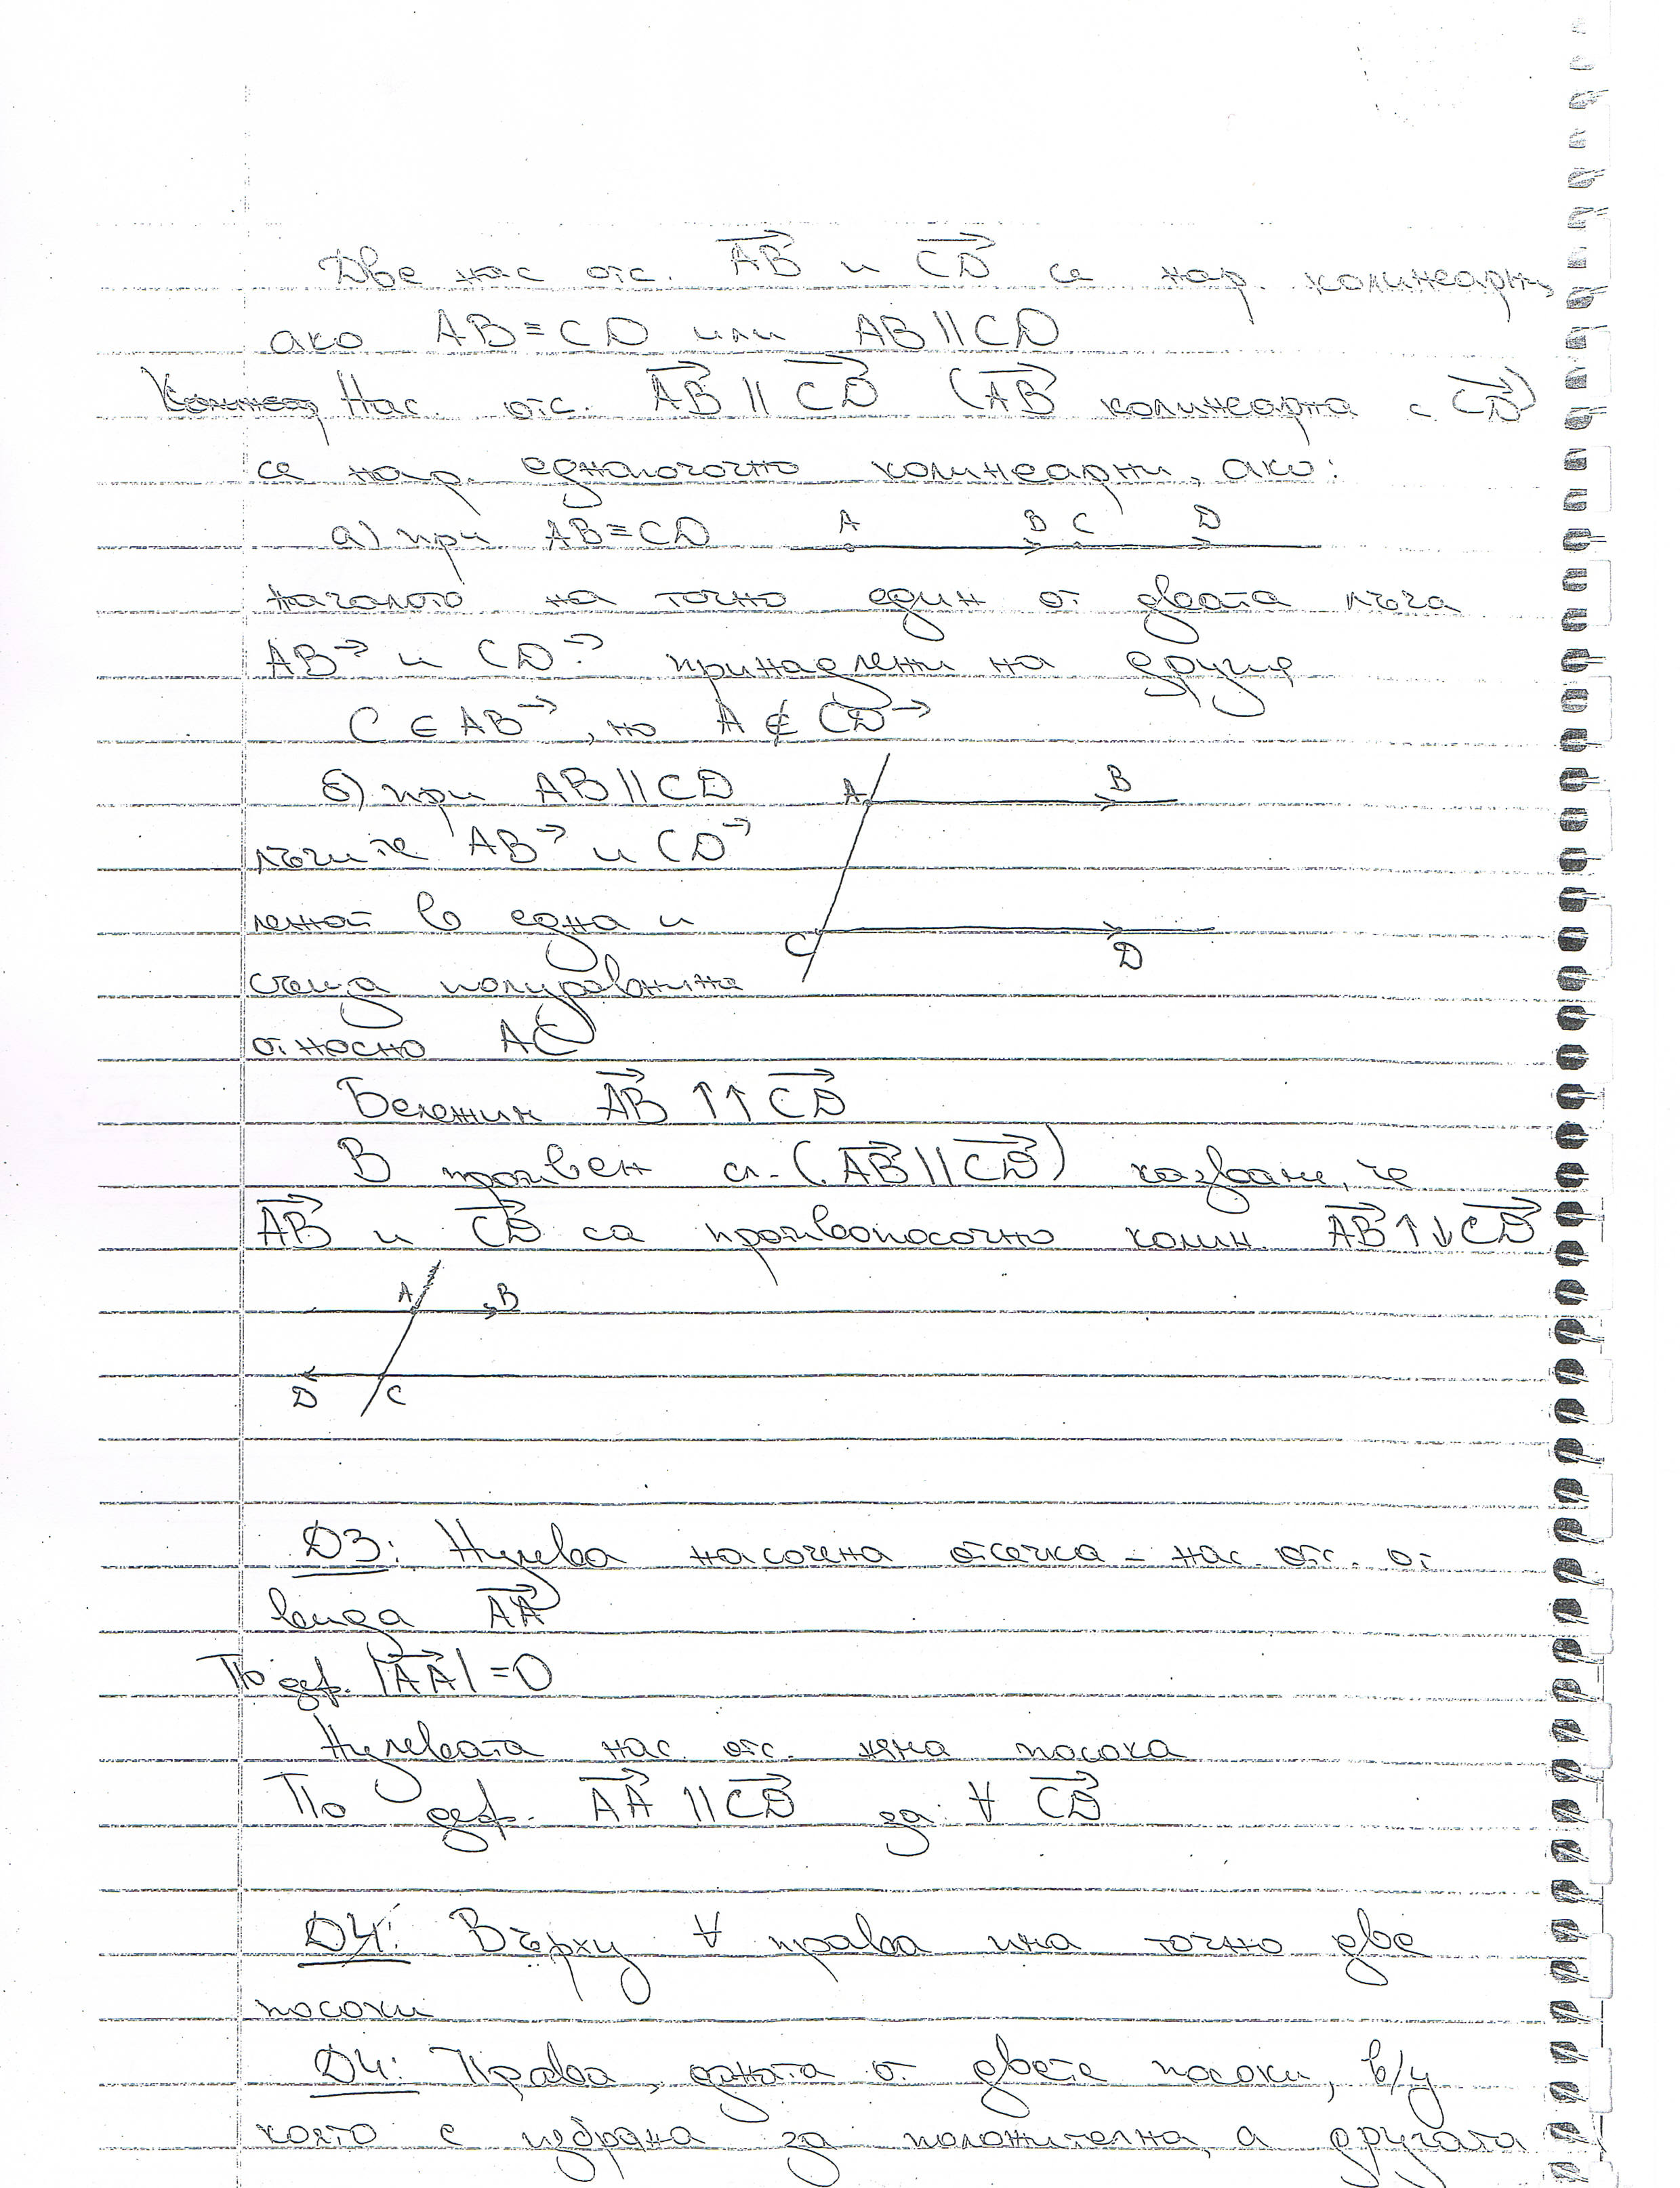 Две нас отс. $\overrightarrow{AB}$ и $\overrightarrow{CD}$ се нар. колинеарни,
ако AB≡CD или AB||CD
Нас. отс. $\overrightarrow{AB}$ || $\overrightarrow{CD}$ ($\overrightarrow{AB}$ колинеарна с $\overrightarrow{CD}$)
се нар. еднопосочно колинеарни, ако:
а) при AB≡CD A B C D
началото на точно един от двата лъча
AB→ и CD→ принадлежи на другия
C ∈ AB→, но A ∉ CD→
б) при AB||CD A B
лъчите AB→ и CD→
лежат в една и C D
съща полуравнина
относно AC
Бележим $\overrightarrow{AB}$ ↑↑ $\overrightarrow{CD}$
В противен сл. ($\overrightarrow{AB}$||$\overrightarrow{CD}$) казваме, че
$\overrightarrow{AB}$ и $\overrightarrow{CD}$ са противопосочно колин. $\overrightarrow{AB}$↑↓$\overrightarrow{CD}$
A B
D C
Д3: Нулева насочена отсечка - нас. отс. от
вида $\overrightarrow{AA}$
По деф. |$\overrightarrow{AA}$| = 0
Нулевата нас. отс. няма посока
По деф. $\overrightarrow{AA}$ || $\overrightarrow{CD}$ за ∀ $\overrightarrow{CD}$
Д4: Върху ∀ права има точно две
посоки
Д4: Права, едната от двете посоки, в/у
която е избрана за положителна, а другата